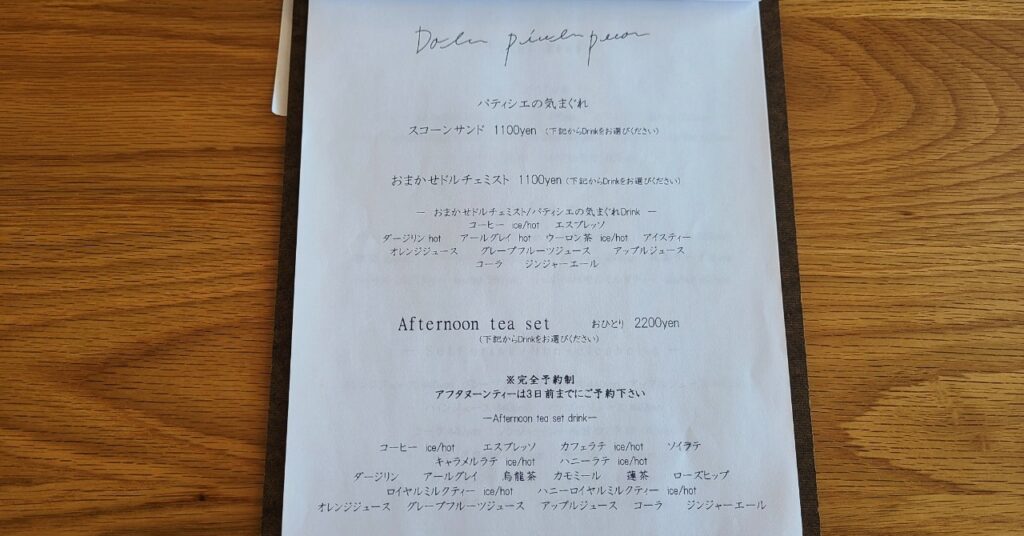 パティシエの気まぐれ
スコーンサンド 1100yen (下記からDrinkをお選びください)
おまかせドルチェミスト 1100yen (下記からDrinkをお選びください)
― おまかせドルチェミスト/パティシエの気まぐれDrink ―
コーヒー ice/hot エスプレッソ
ダージリン hot アールグレイ hot ウーロン茶 ice/hot アイスティー
オレンジジュース グレープフルーツジュース アップルジュース
コーラ ジンジャーエール
Afternoon tea set おひとり 2200yen
(下記からDrinkをお選びください)
※完全予約制
アフタヌーンティーは3日前までにご予約下さい
―Afternoon tea set drink―
コーヒー ice/hot エスプレッソ カフェラテ ice/hot ソイラテ
キャラメルラテ ice/hot ハニーラテ ice/hot
ダージリン アールグレイ 烏龍茶 カモミール 蓮茶 ローズヒップ
ロイヤルミルクティー ice/hot ハニーロイヤルミルクティー ice/hot
オレンジジュース グレープフルーツジュース アップルジュース コーラ ジンジャーエール